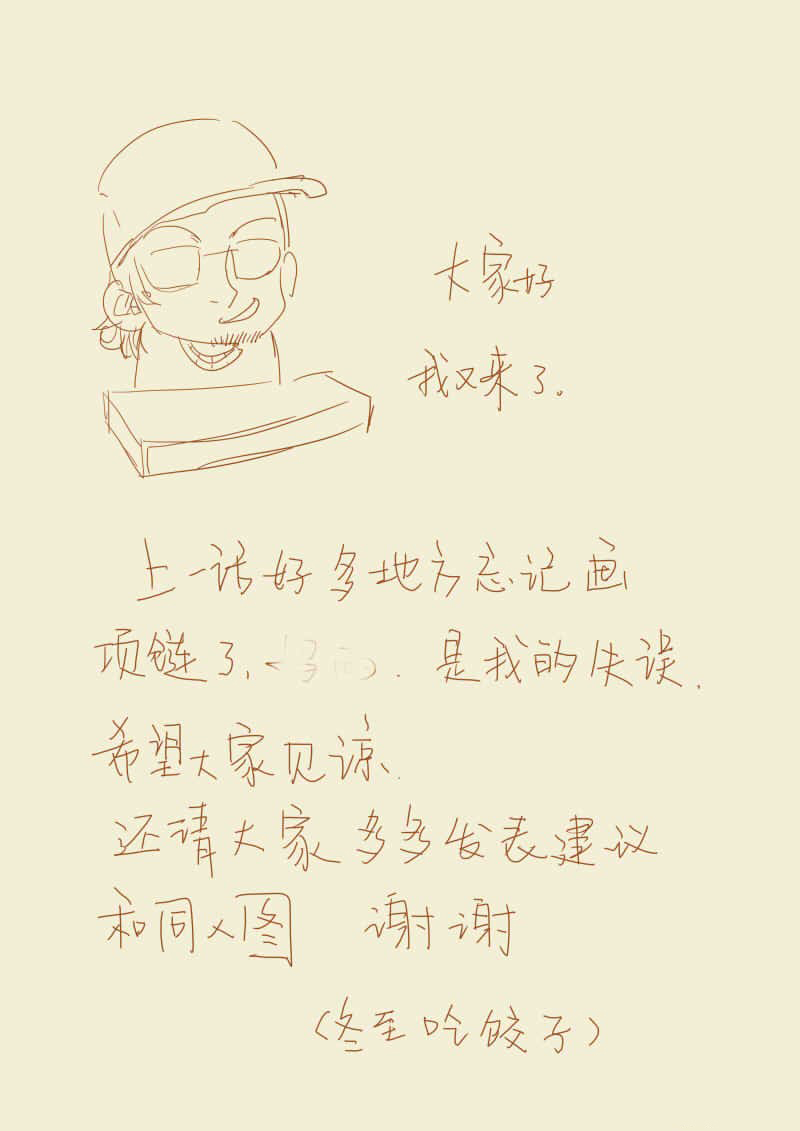 大家好
我又来了。
上一话好多地方忘记画
项链了, 是我的失误.
希望大家见谅.
还请大家多多发表建议
和同人图 谢谢
(冬至吃饺子)